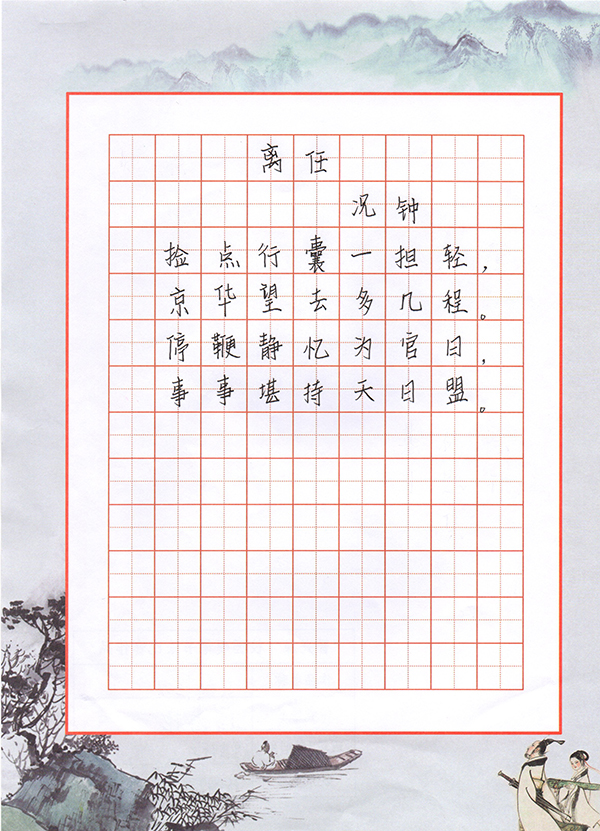 离任
况钟
捡点行囊一担轻，
京华望去多几程。
停鞭静忆为官日，
事事堪持天日盟。